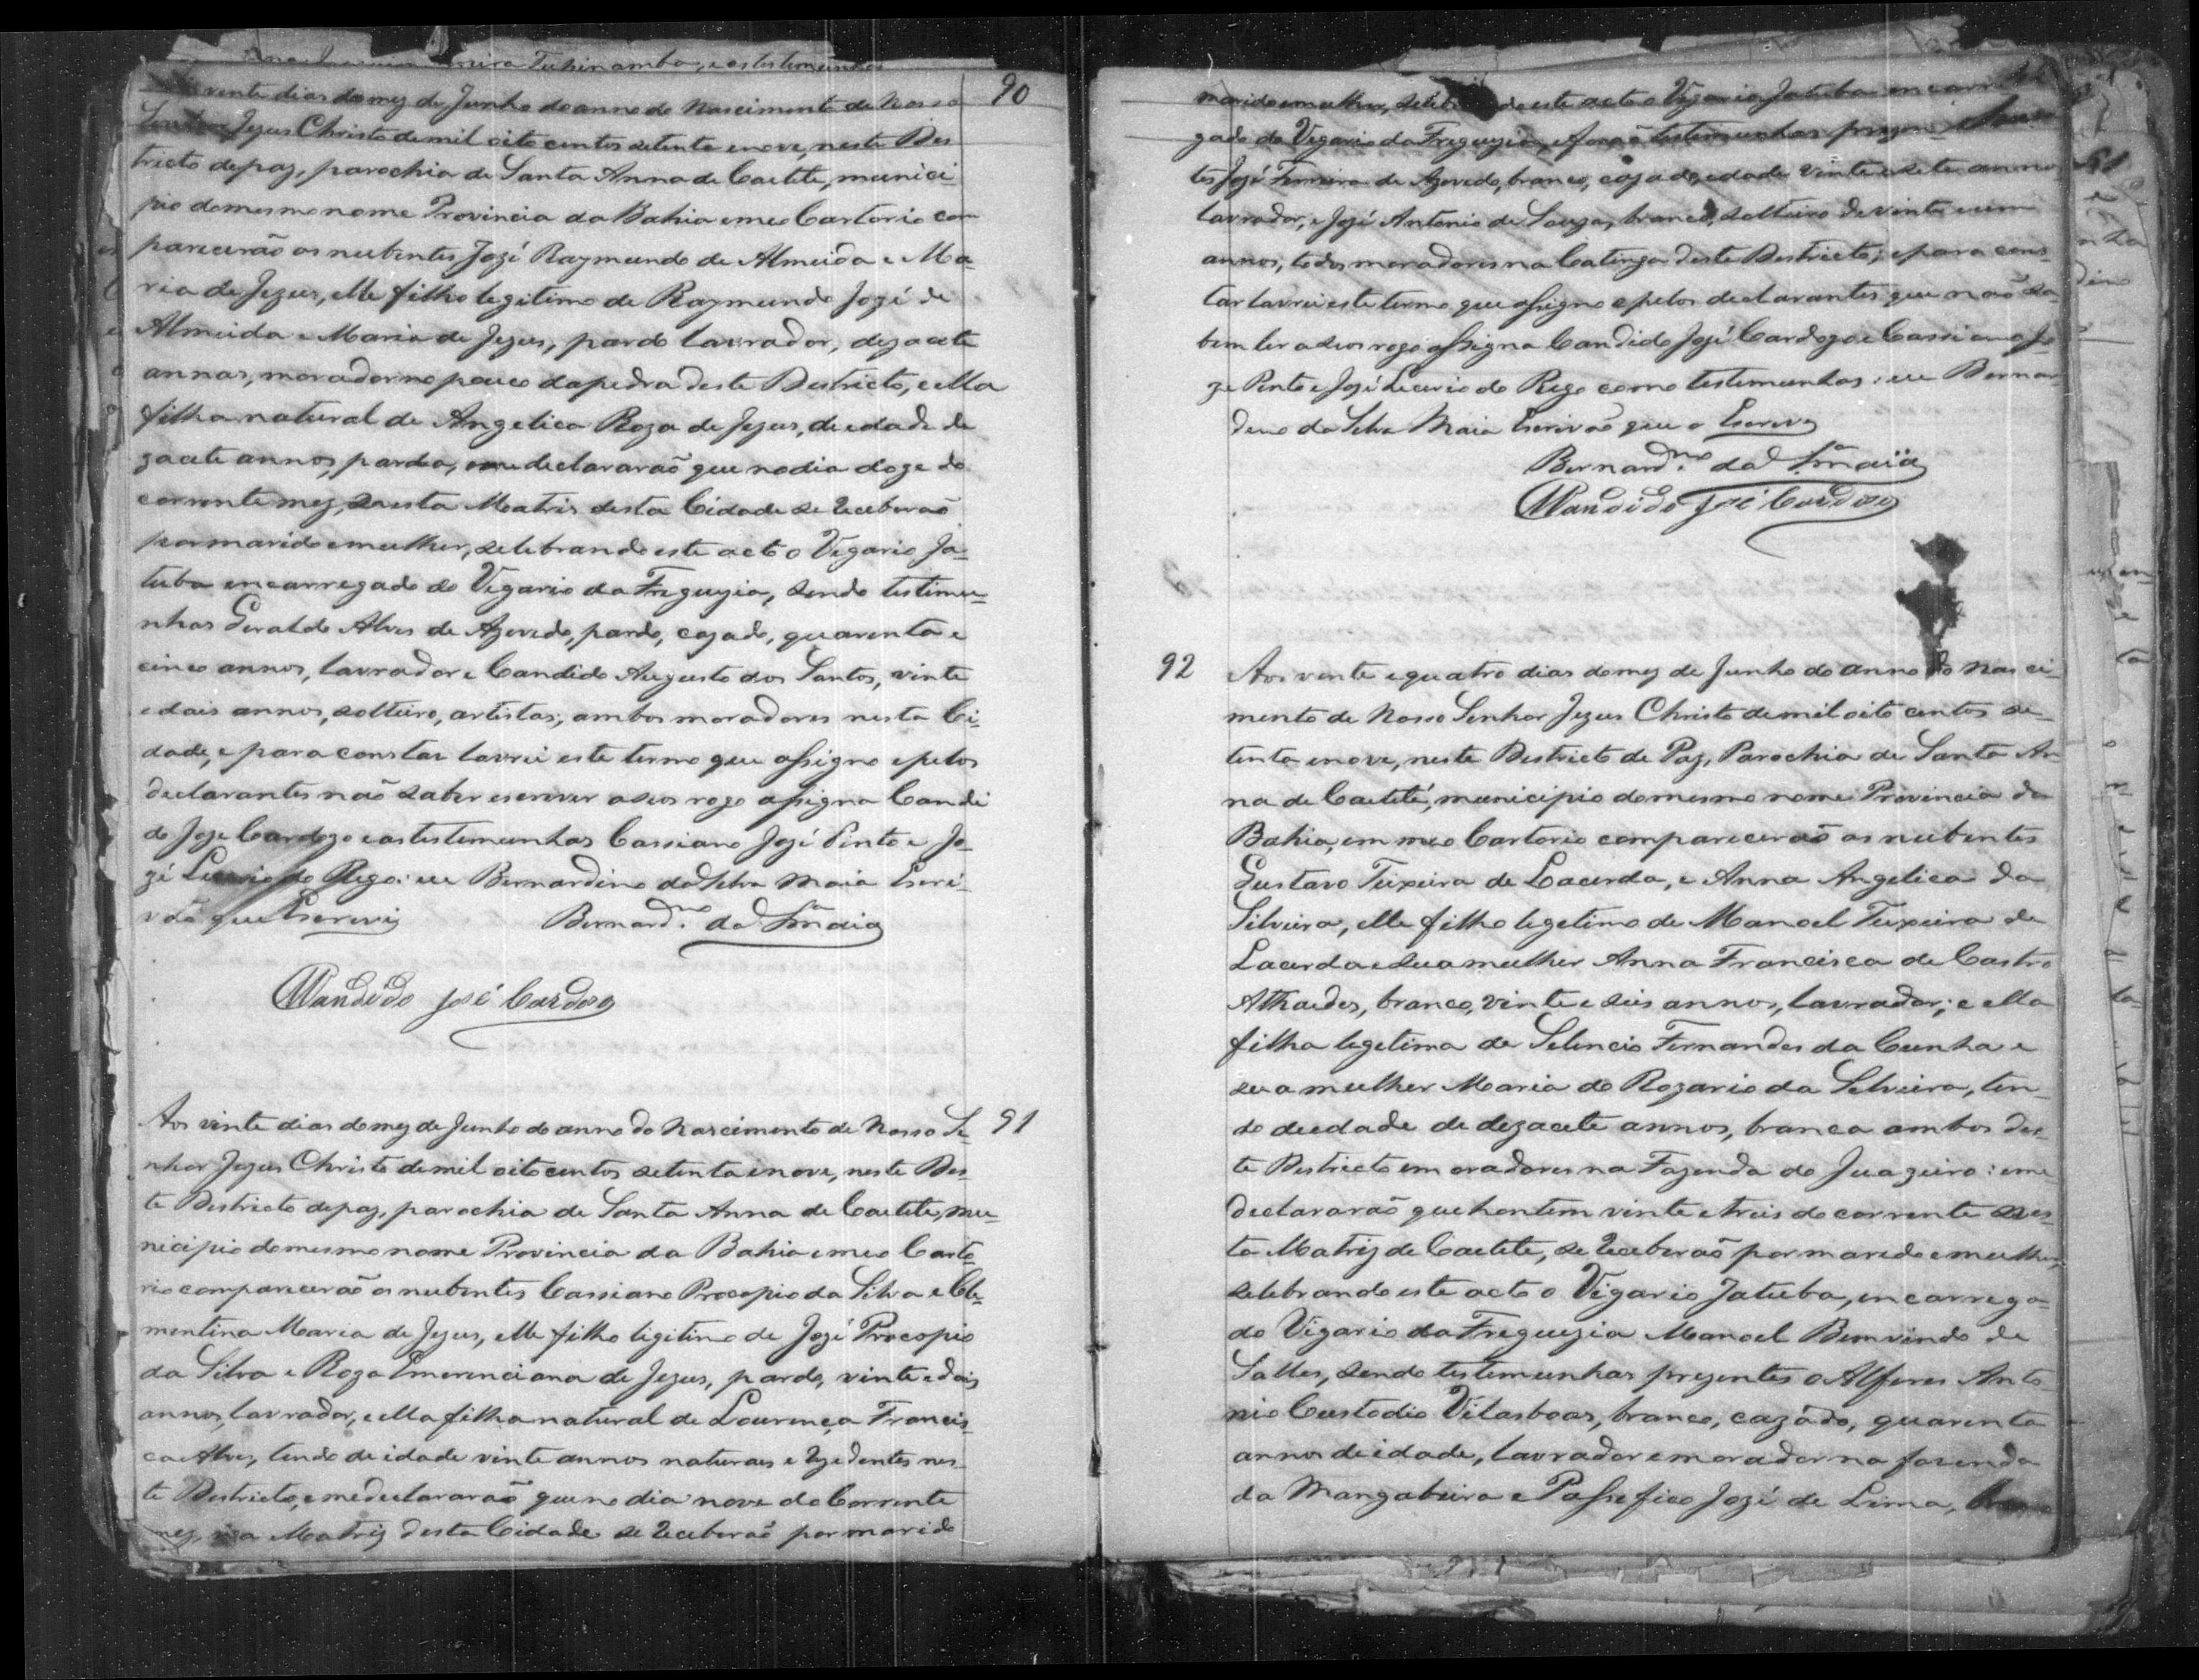 Tupinamba, e as testemunhas
90
vinte dias do mez de Junho do anno do Nascimento de Nosso
Senhor Jezus Christo de mil oito centos setenta e nove, neste Des
tricto de paz, parochia de Santa Anna de Caetete, munici
pio do mesmo nome Provincia da Bahia em meo Cartorio com
parecerão os nubentes Jozé Raymundo de Almeida e Ma-
ria de Jezus, elle filho legitimo de Raymundo Jozé de
Almeida e Maria de Jezus, pardo lavrador, dezacete
annos, morador no pouco da pedra deste Destricto, e ella
filha natural de Angelica Roza de Jezus, de edade de
zacete annos, parda, e me declararão que no dia doze do
corrente mez, desta Matris desta Cidade se receberão
por marido e mulher, selebrando este acto o Vigario Ja-
tuba encarregado do Vigario da Freguezia, sendo testimu-
nhas Geraldo Alves de Azevedo, pardo, cazado, quarenta e
cinco annos, lavrador e Candido Augusto dos Santos, vinte
e dois annos, solteiro, artistas, ambos moradores nesta Ci-
dade, e para constar lavrei este termo que assigno e pelos
declarantes não saber escrever a seos rogo assigna Candi
do Joze Cardozo e as testemunhas Cassiano Jozé Pinto e Jo-
zé Lucrio do Rego: eu Bernardino da Silva Maia Escri-
vão que Escrevi Bernardno da Sa Maia
Candido José Cardoso
91
Aos vinte dias do mez de Junho do anno do Nascimento de Nosso Se-
nhor Jezus Christo de mil oito centos setenta e nove, neste Des-
te Districto de paz, parochia de Santa Anna de Caetete, mu-
nicipio do mesmo nome Provincia da Bahia em meo Carto-
rio comparecerão os nubentes Cassiano Procopio da Silva e Cle-
mentina Maria de Jezus, elle filho ligitimo de Jozé Procopio
da Silva e Roza Emerenciana de Jezus, pardo, vinte e dois
annos, lavrador, e ella filha natural de Lourença Francis-
ca Alves, tendo de idade vinte annos naturaes e rezedentes nes-
te Destricto, e me declararão que no dia nove do Corrente
mez, na Matriz desta Cidade se receberão por marido
marido e mulher, selebrando este acto o Vigario Jatuba encarre
gado do Vigario da Freguezia, e forão testimunhas prezen
tes Jozé Ferreira de Azevedo, branco, cazado, edade vinte e sete annos
lavrador, e Jozé Antonio de Souza, branco, solteiro de vinte e um
annos, todos moradores na Catinga deste Destricto; e para cons-
tar lavrei este termo que assigno e pelos declarantes que não sa-
bem ler a seos rogo assigna Candido Jozé Cardozo e Cassiano Jo
ze Pinto e Jozé Lucrio do Rego como testemunhas: eu Bernar
dino da Silva Maia Escrivão que o Escrevy
Bernardno da Sa Maia
Candido José Cardoso
92
Aos vente e quatro dias do mez de Junho do anno do Nasci-
mento de Nosso Senhor Jezus Christo de mil oito centos se-
tenta e nove, neste Destricto de Paz, Parochia de Santa An
na de Caetité, municipio do mesmo nome Provincia da
Bahia, em meo Cartorio comparecerão os nubentes
Gustavo Teixeira de Lacerda, e Anna Angelica da
Silveira, elle filho legetimo de Manoel Teixeira de
Lacerda e sua mulher Anna Francisca de Castro
Athaides, branco, vinte e seis annos, lavrador; e ella
filha legetima de Selencio Fernandes da Cunha e
sua mulher Maria do Rozario da Silveira, ten-
do de edade de dezacete annos, branca ambos des-
te Destricto e moradores na Fazenda do Juazeiro: e me
declararão que hontem vinte e treis do corrente nes-
ta Matriz de Caetete, se receberão por marido e mulher,
selebrando este acto o Vigario Jatuba, encarrega-
do Vigario da Freguezia Manoel Bemvindo de
Salles, sendo testemunhas prezentes o Alferes Anto
nio Custodio Vilasboas, branco, cazado, quarenta
annos de idade, lavrador e morador na fazenda
da Mangabeira e Passifico Jozé de Lima,